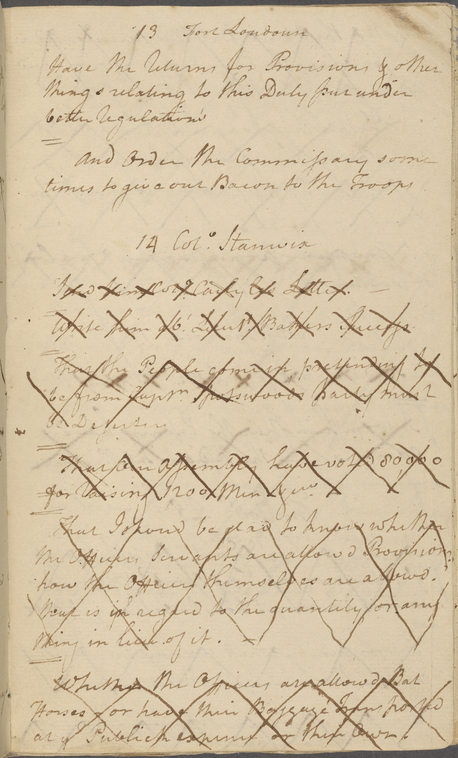 13 Fort Loudoun
Have the Returns for Provisions & other
things relating to this Duty put under
better regulation's
And Order the Commissary some
times to give out Bacon to the Troops
14 Colo. Stanwix
Send him Letter
Write him Lieut. Bakers
That the People come in pretending to
be from Captn Spotswoods Party must
be Deserters
That our Assembly have voted 80,000
for raising 1200 Men
That I should be glad to know whether
the Officers Servants are allowd Provisions
how the Officers themselves are allowd.
that is in regard to the quantity, or any
thing in lieu of it.
Whether the Officers are allowd Bat
Horses or have their Baggage Transported
at ye Publick expence or their Own.